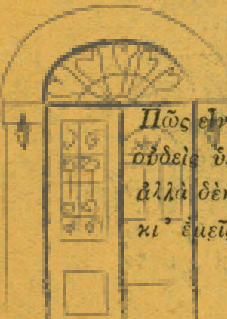 Πῶς εἶν
οὐδεὶς
ἀλλὰ δὲν
κι' ἐμεῖς